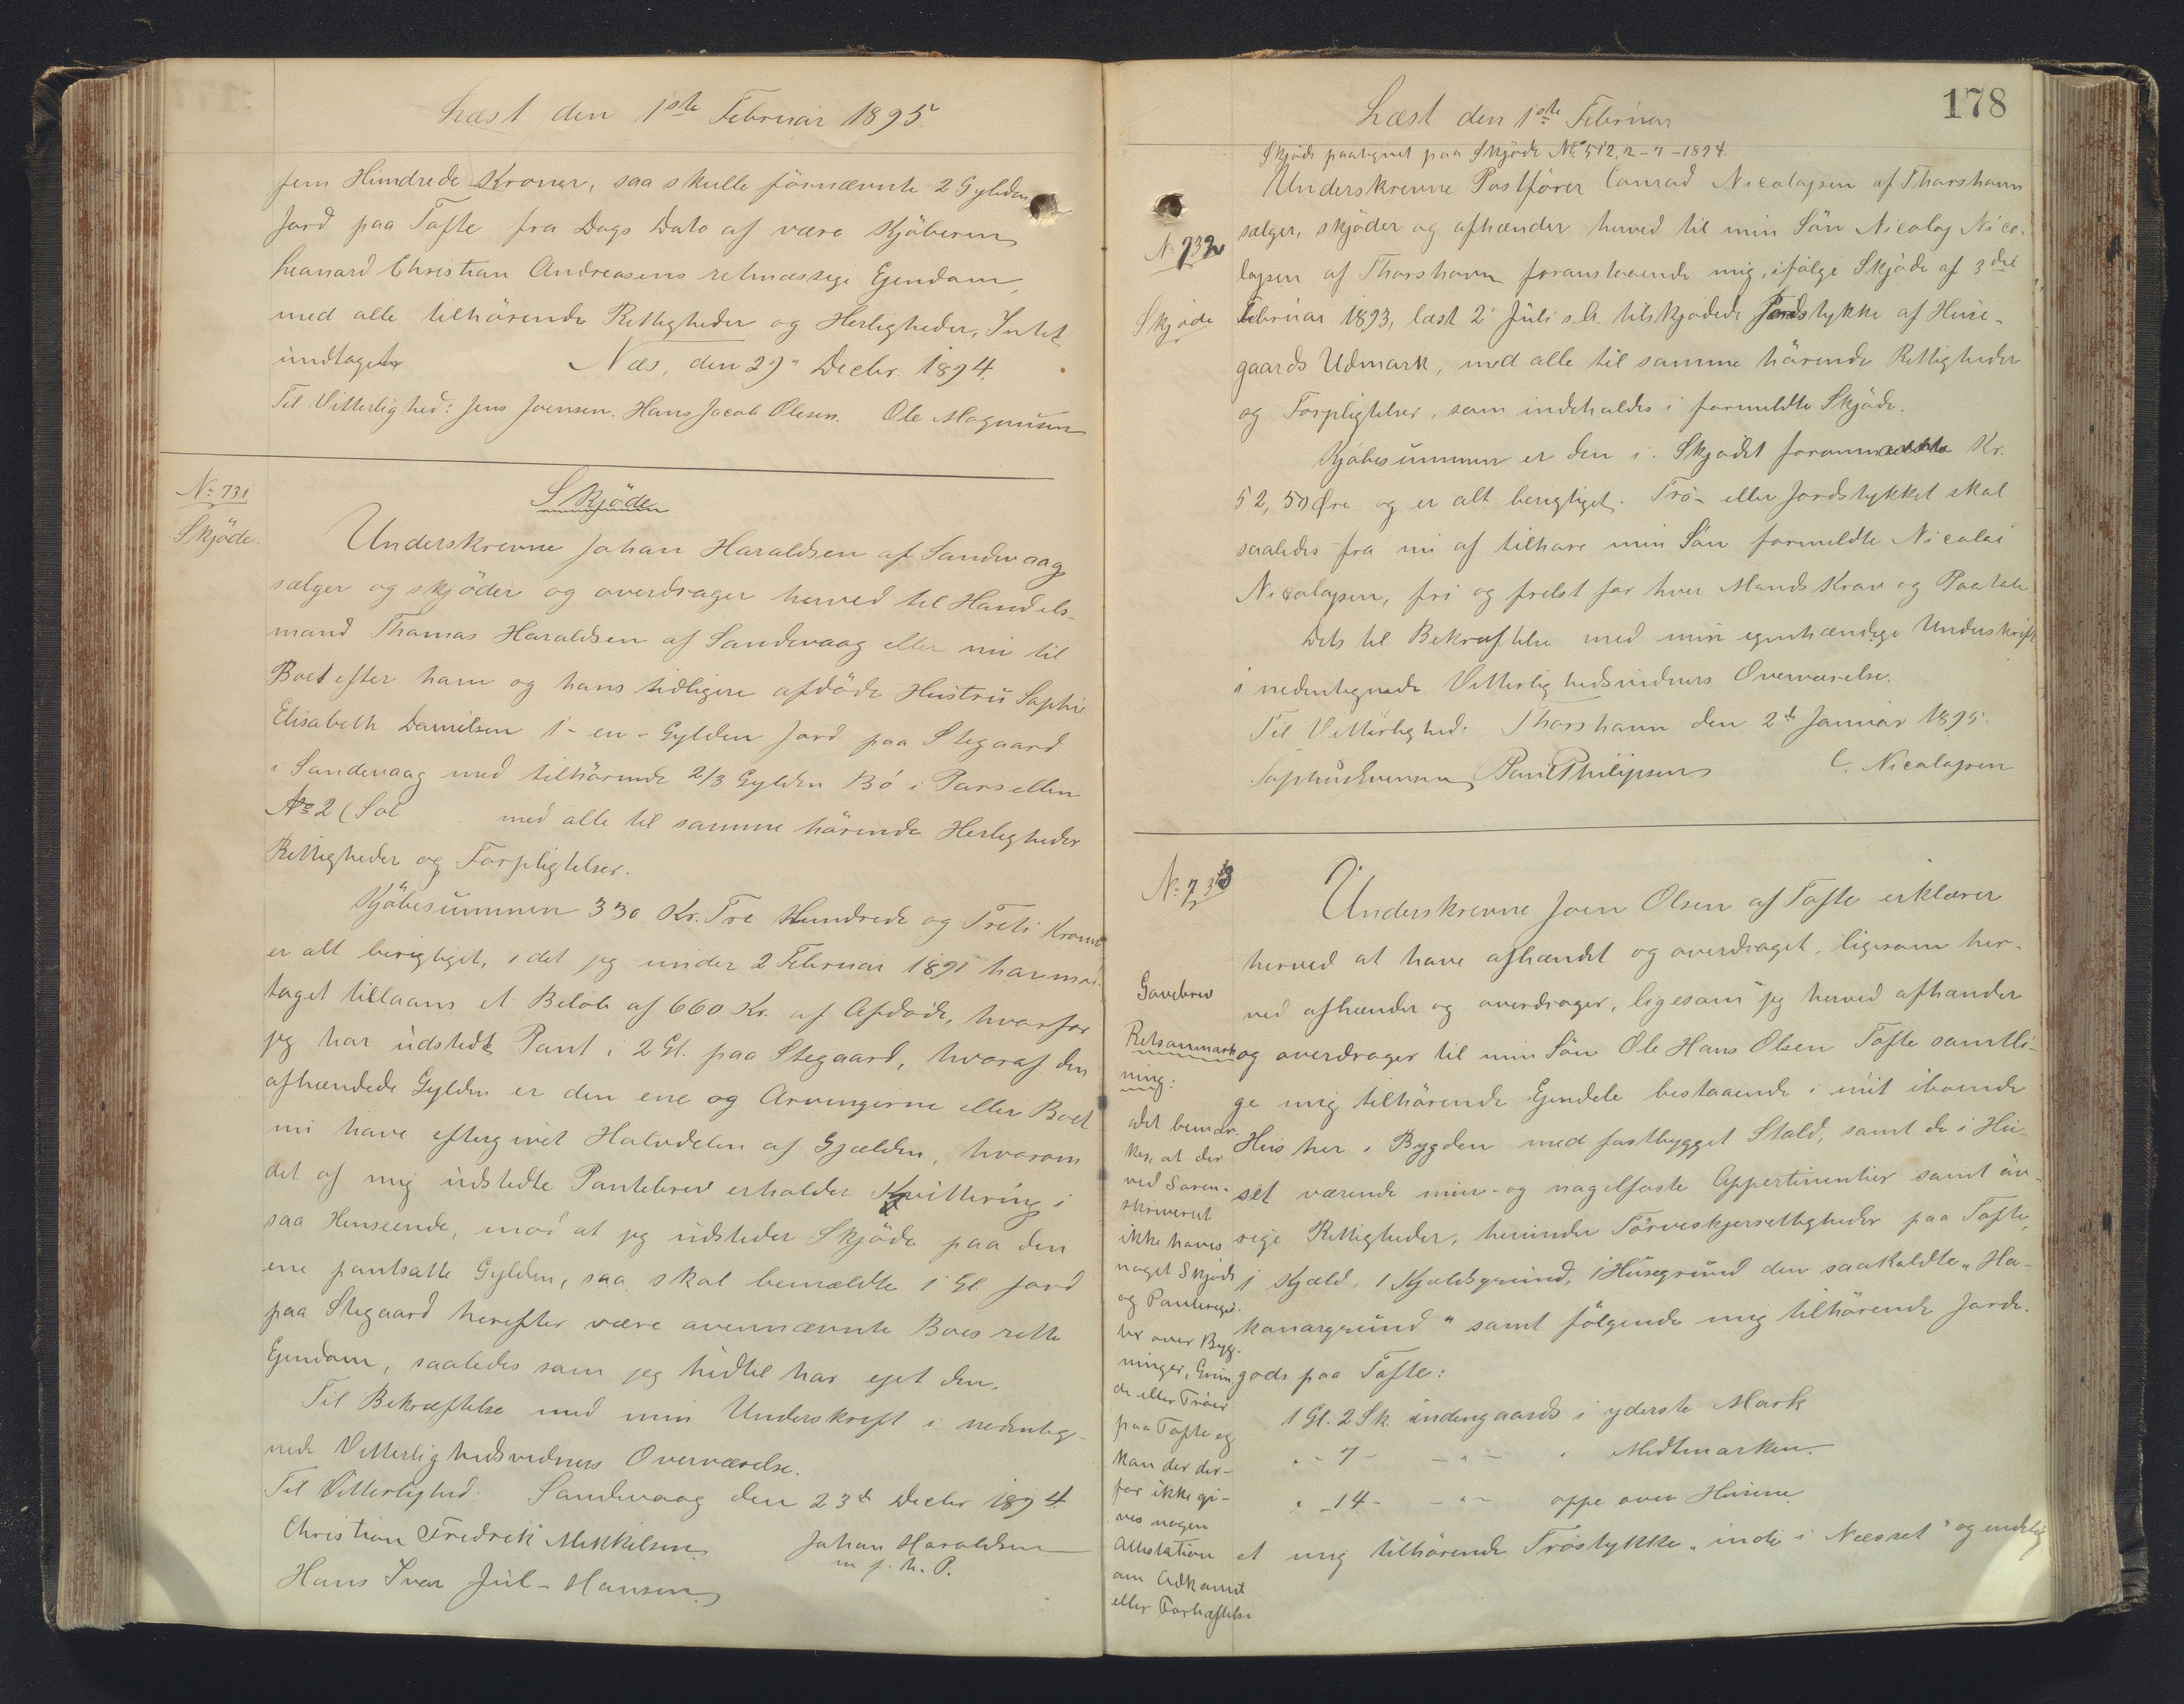 Læst den 1ste Februar 1895.
fem Hundrede Kroner, saa skulle förnævnte 2 Gylden
Jord paa Tofte fra Dags Dato af være Kjöberen
Leonard Christian Andreasens retmæssige Ejendom,
med alle tilhörende Rettigheder og Herligheder, Intet
undtaget. Næs, den 29" Decbr. 1894.
Til Vitterlighed: Jens Joensen. Hans Jacob Olesen. Ole Magnusen
No 731
Skjöde.
Skjöde
Underskrevne Johan Haraldsen af Sandevaag
sælger og skjöder og overdrager herved til Handels-
mand Thomas Haraldsen af Sandevaag eller nu til
Boet efter ham og hans tidligere afdöde Hustru Sophie
Elisabeth Danielsen 1 - en - Gylden Jord paa Stegaard
i Sandevaag med tilhörende 2/3 Gylden Bö i Parsellen
No 2 (Sol med alle til samme hörende Herligheder
Rettigheder og Forpligtelser.
Kjöbesummen 330 Kr. Tre Hundrede og Treti Kroner
er alt berigtiget, idet jeg under 2 Februar 1891 har mod-
taget tillaans et Belöb af 660 Kr. af Afdöde, hvorfor
jeg har udstedt Pant i 2 Gl. paa Stegaard, hvoraf den
afhændede Gylden er den ene og Arvingerne eller Boet
nu have eftergivet Halvdelen af Gjælden, hvorom
det af mig udstedte Pantebrev erholder Kvittering i
saa Henseende, mod at jeg udsteder Skjöde paa den
ene pantsatte Gylden, saa skal bemældte 1 Gl. Jord
paa Stegaard herefter være ovennævnte Boes rette
Ejendom, saaledes som jeg hidtil har ejet den.
Til Bekræftelse med min Underskrift i nedenteg-
nede Vitterlighedsvidners Overværelse.
Til Vitterlighed. Sandevaag den 23de Decbr 1894.
Christian Fredrik Mikkelsen. Johan Haraldsen
m. f. h. P.
Hans Ivar Jul-Hansen
178
Læst den 1ste Februar
Skjöde paategnet paa Skjöde No 512, 2-7-1894.
No 732
Skjöde
Underskrevne Postförer Conrad Nicolajsen af Thorshavn
sælger, skjöder og afhænder herved til min Sön Nicolaj Nico-
lajsen af Thorshavn foranstaaende mig, ifölge Skjöde af 3die
Februar 1893, læst 2 Juli s. A. tilskjödede Jordstykke af Huse-
gaards Udmark, med alle til samme hörende Rettigheder
og Forpligtelser, som indeholdes i formeldte Skjöde.
Kjöbesummen er den i Skjödet foranmeldte Kr.
52,50 Øre og er alt berigtiget. Trö- eller Jordstykket skal
saaledes fra nu af tilhöre min Sön formeldte Nicolai
Nicolajsen, fri og frelst for hver Mands Krav og Paatale
Dets til Bekræftelse med min egenhændige Underskrift
i nedentegnede Vitterlighedsvidners Overværelse.
Til Vitterlighed. Thorshavn den 2de Januar 1895.
Sophus Evensen Poul Philipsen C. Nicolajsen
No 733
Underskrevne Joen Olsen af Tofte erklærer
herved at have afhændet og overdraget, ligesom her-
ved afhænder og overdrager, ligesom jeg herved afhænder
og overdrager til min Sön Ole Hans Olsen Tofte samtli-
ge mig tilhörende Ejendele bestaaende i mit iboende
Hus her i Bygden med fastbygget Stald, samt de i Hu-
set værende mur- og nagelfaste Appertinentier samt öv-
rige Rettigheder, herunder Törveskjersrettigheder paa Tofte,
1 Kjæld, 1 Kjældsgrund, 1 Husegrund den saakaldte "Ha-
konargrund" samt fölgende mig tilhörende Jorde-
gods paa Tofte:
1 Gl. 2 Sk. indengaards i yderste Mark
" - 7 - - " - " Midtmarken.
" - 14 - - " - oppe over Husene
et mig tilhörende Tröstykke "inde i Næsset" og endelig
Gavebrev
Retsanmærk-
ning:
Det bemær-
kes, at der
ved Soren-
skriveriet
ikke haves
noget Skjöde
og Panteregis-
ter over Byg-
ninger, Grun-
de eller Tröer
paa Tofte og
kan der der-
for ikke gi-
ves nogen
Attestation
om Adkomst
eller Forhæftelse